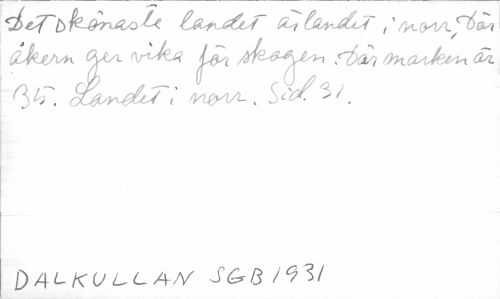 Det skönaste landet är landet i norr, Där
åkern ger vika för skogen. Där marken är
35. Landet i norr. Sid. 31.
DALKULLAN SGB 1931